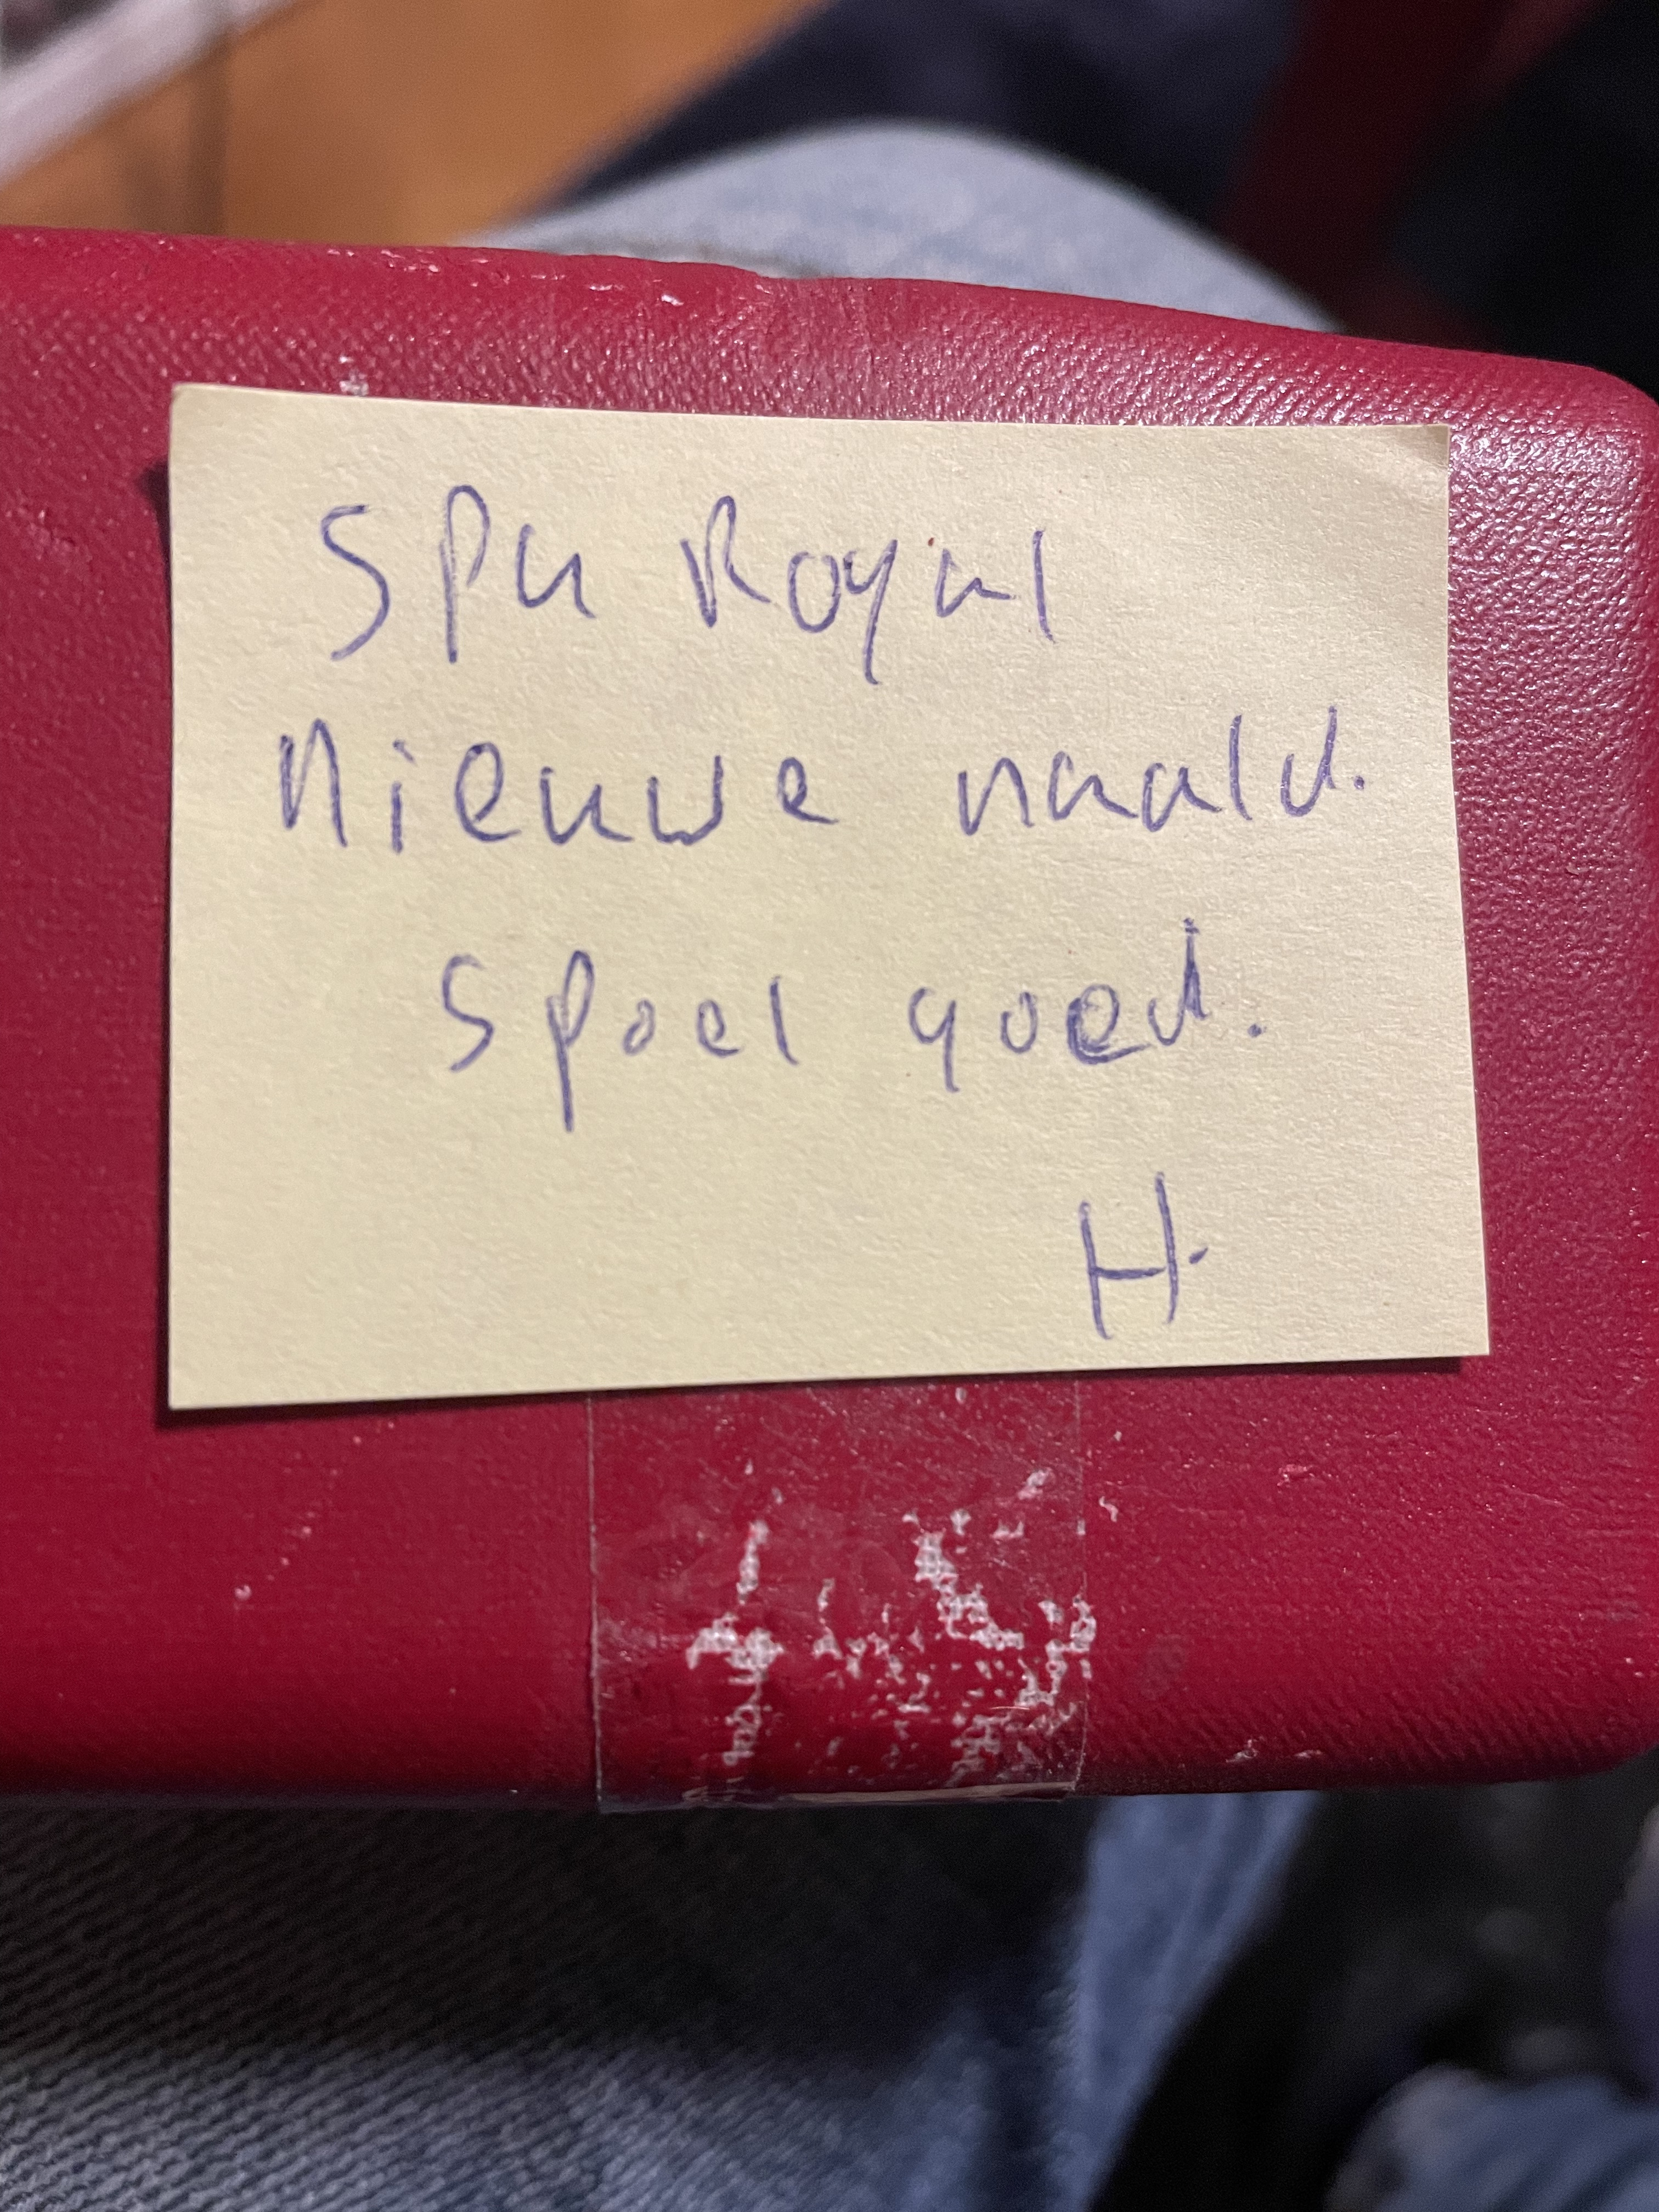 SPU Royal
Nieuwe naald.
Spoel goed.
H.